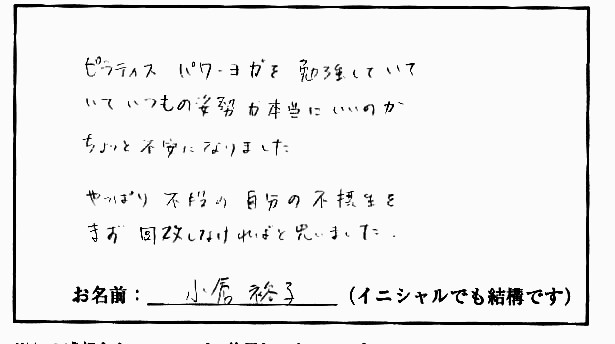 ピラティス パワーヨガを 勉強していて
いて いつもの姿勢が本当にいいのか
ちょっと不安になりました
やっぱり 不段の自分の不摂生を
まず 改しなければと思いました.
お名前： 小 裕子 （イニシャルでも結構です）